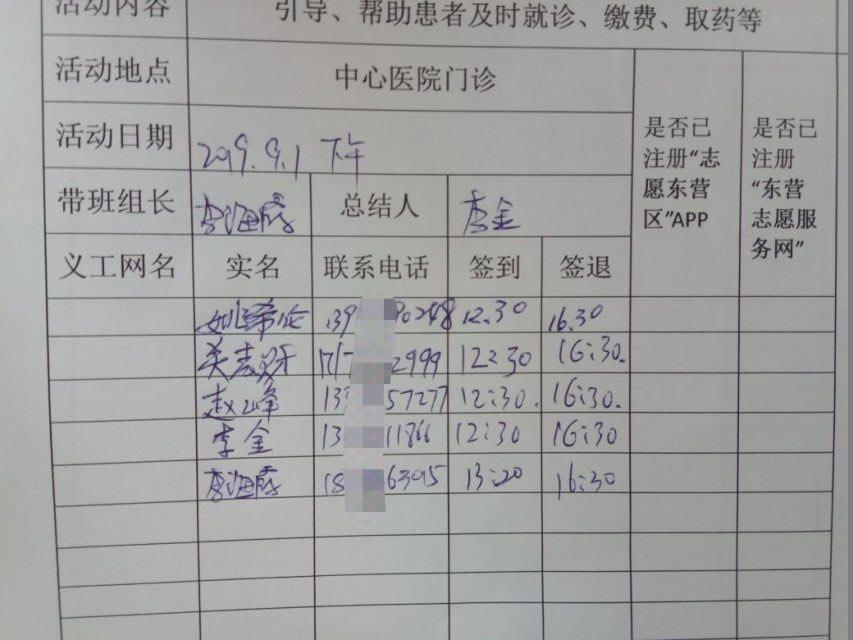 活动内容 引导、帮助患者及时就诊、缴费、取药等
活动地点 中心医院门诊
是否已注册“志愿东营区”APP
是否已注册“东营志愿服务网”
活动日期 2019.9.1 下午
带班组长 李海霞 总结人 李金
义工网名 实名 联系电话 签到 签退
姚希伦 139 90248 12.30 16.30
关志牙 17/7 2999 12:30 16:30.
赵峰 133 57277 12:30. 16:30.
李金 13 11866 12:30 16:30
李海霞 18 63095 13:20 16:30